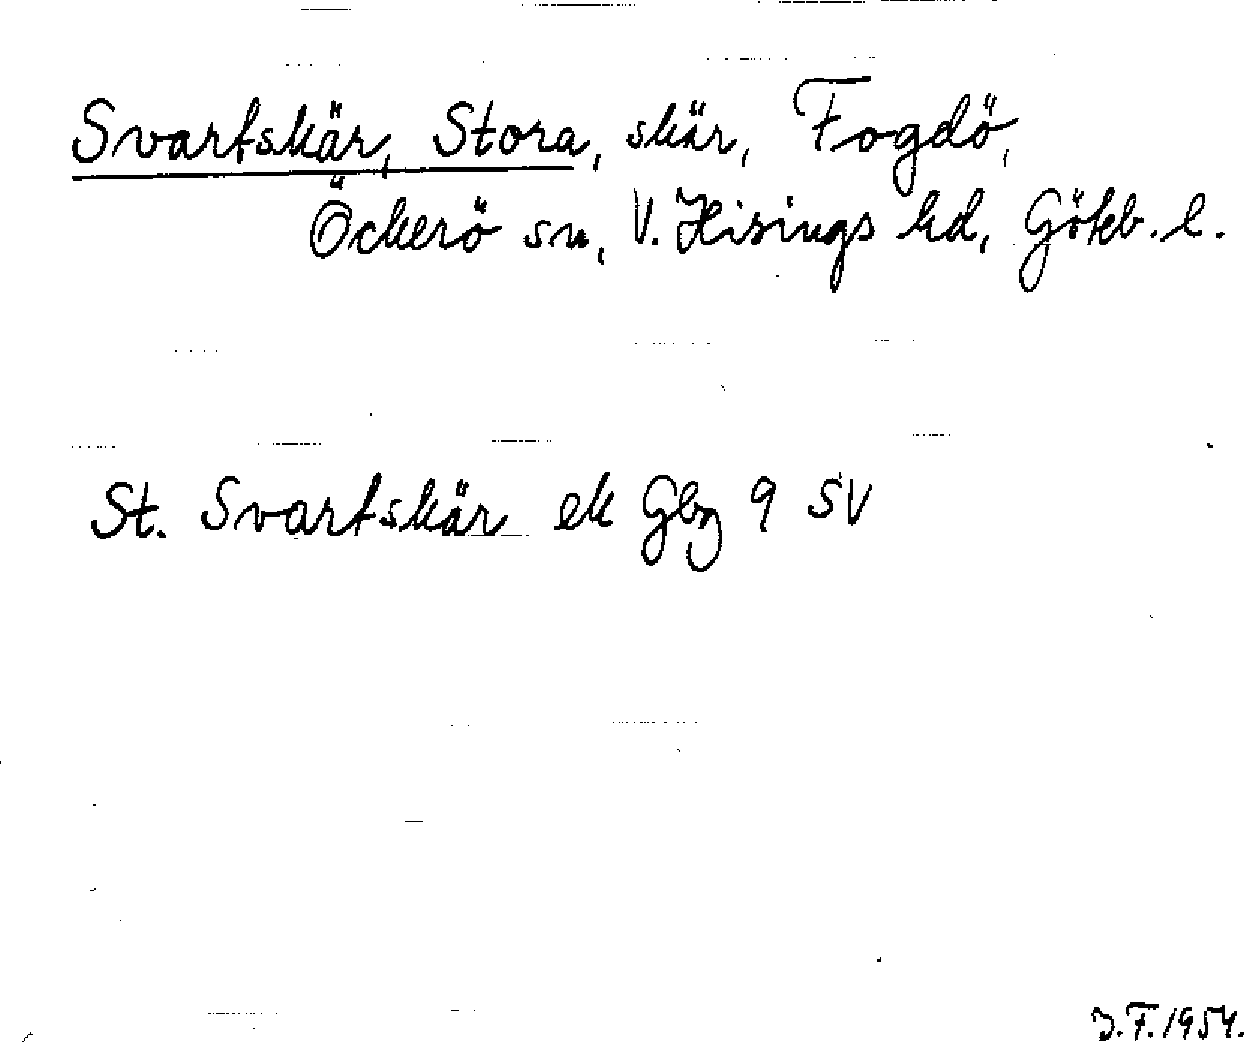 Svartskär, Stora, skär, Fogdö,
Öckerö sn, V. Hisings hd, Göteb. l.
St. Svartskär ek Gbg 9 SV
J.F. 1954.